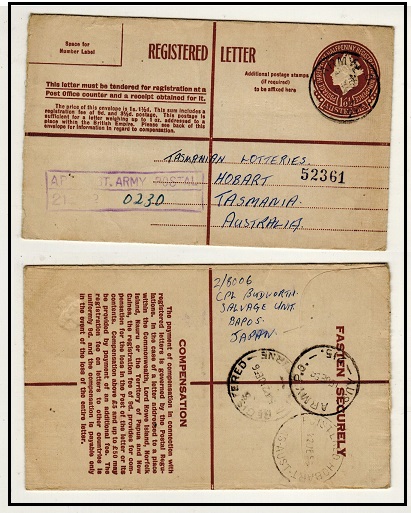 Space for
Number Label
REGISTERED LETTER
Additional postage stamps
(if required)
to be affixed here
This letter must be tendered for registration at a
Post Office counter and a receipt obtained for it.
The price of this envelope is 1s. 1½d. This sum includes a
registration fee of 9d. and 3½d. postage. This postage is
sufficient for a letter weighing up to 1 oz. addressed to a
place within the British Empire. Please see back of
envelope for information in regard to compensation.
TASMANIAN LOTTERIES.
HOBART 52361
TASMANIA.
AUSTRALIA.
ARMY POSTAL
0230
2/8006
CPL BUDWORTH.
SALVAGE UNIT
BAPOS.
JAPAN.
FASTEN SECURELY
COMPENSATION
The payment of compensation in connection with
registered letters is governed by the Postal Regu-
lations. In the case of a letter addressed to a place
within the Commonwealth, Lord Howe Island, Norfolk
Island, Nauru or the Territory of Papua and New
Guinea, the registration fee of 9d. provides for com-
pensation for the loss in the Post of the letter or its
contents. Compensation above £5 and up to £50 may
be provided by payment of an additional fee. The
registration fee on letters to other countries is
uniformly 9d. and the compensation is payable only
in the event of the loss of the entire letter.
REGISTERED
ARMY P.O.
HOBART